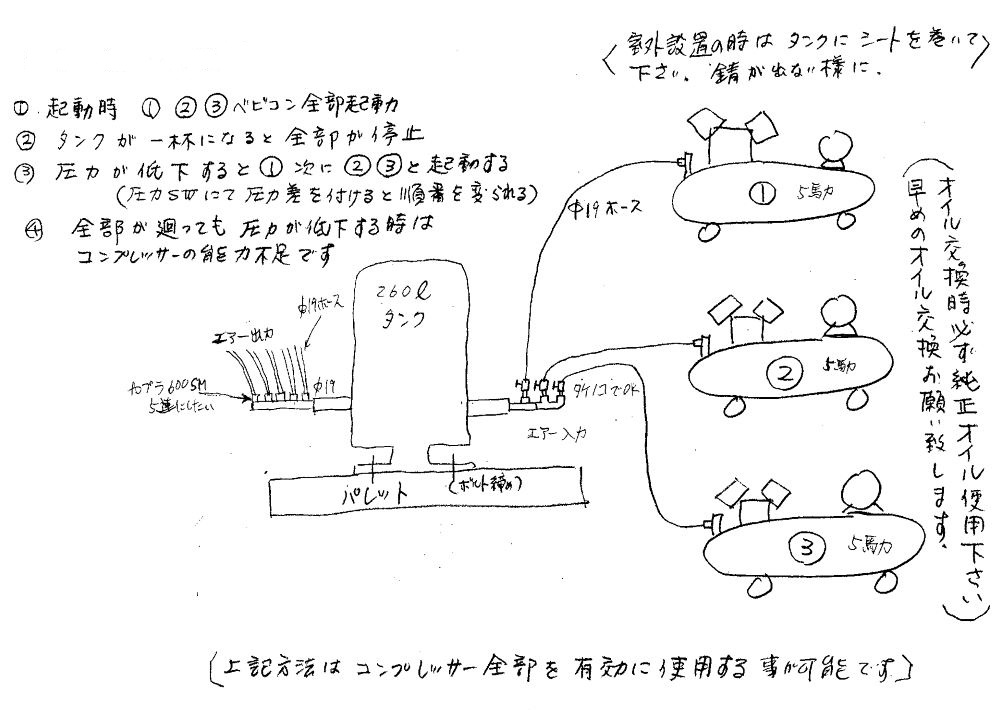 〈室外設置の時は タンクに シートを巻いて
下さい. 錆が出ない様に.〉
①. 起動時 ① ② ③ ベビコン全部起動
② タンクが一杯になると 全部が停止
③ 圧力が低下すると ① 次に ② ③ と起動する
(圧力SWにて 圧力差を付けると順番を変られる)
④ 全部が廻っても 圧力が低下する時は
コンプレッサーの能力不足です
260ℓ
タンク
φ19ホース
エアー出力
カプラ600SM
5連にしたい
φ19
エアー入力
タケノコでOK
φ19ホース
① 5馬力
② 5馬力
③ 5馬力
パレット
(ボルト締め)
(オイル交換時必ず純正オイル使用下さい)
早めのオイル交換お願い致します.
〔上記方法は コンプレッサー全部を 有効に使用する事が可能です〕